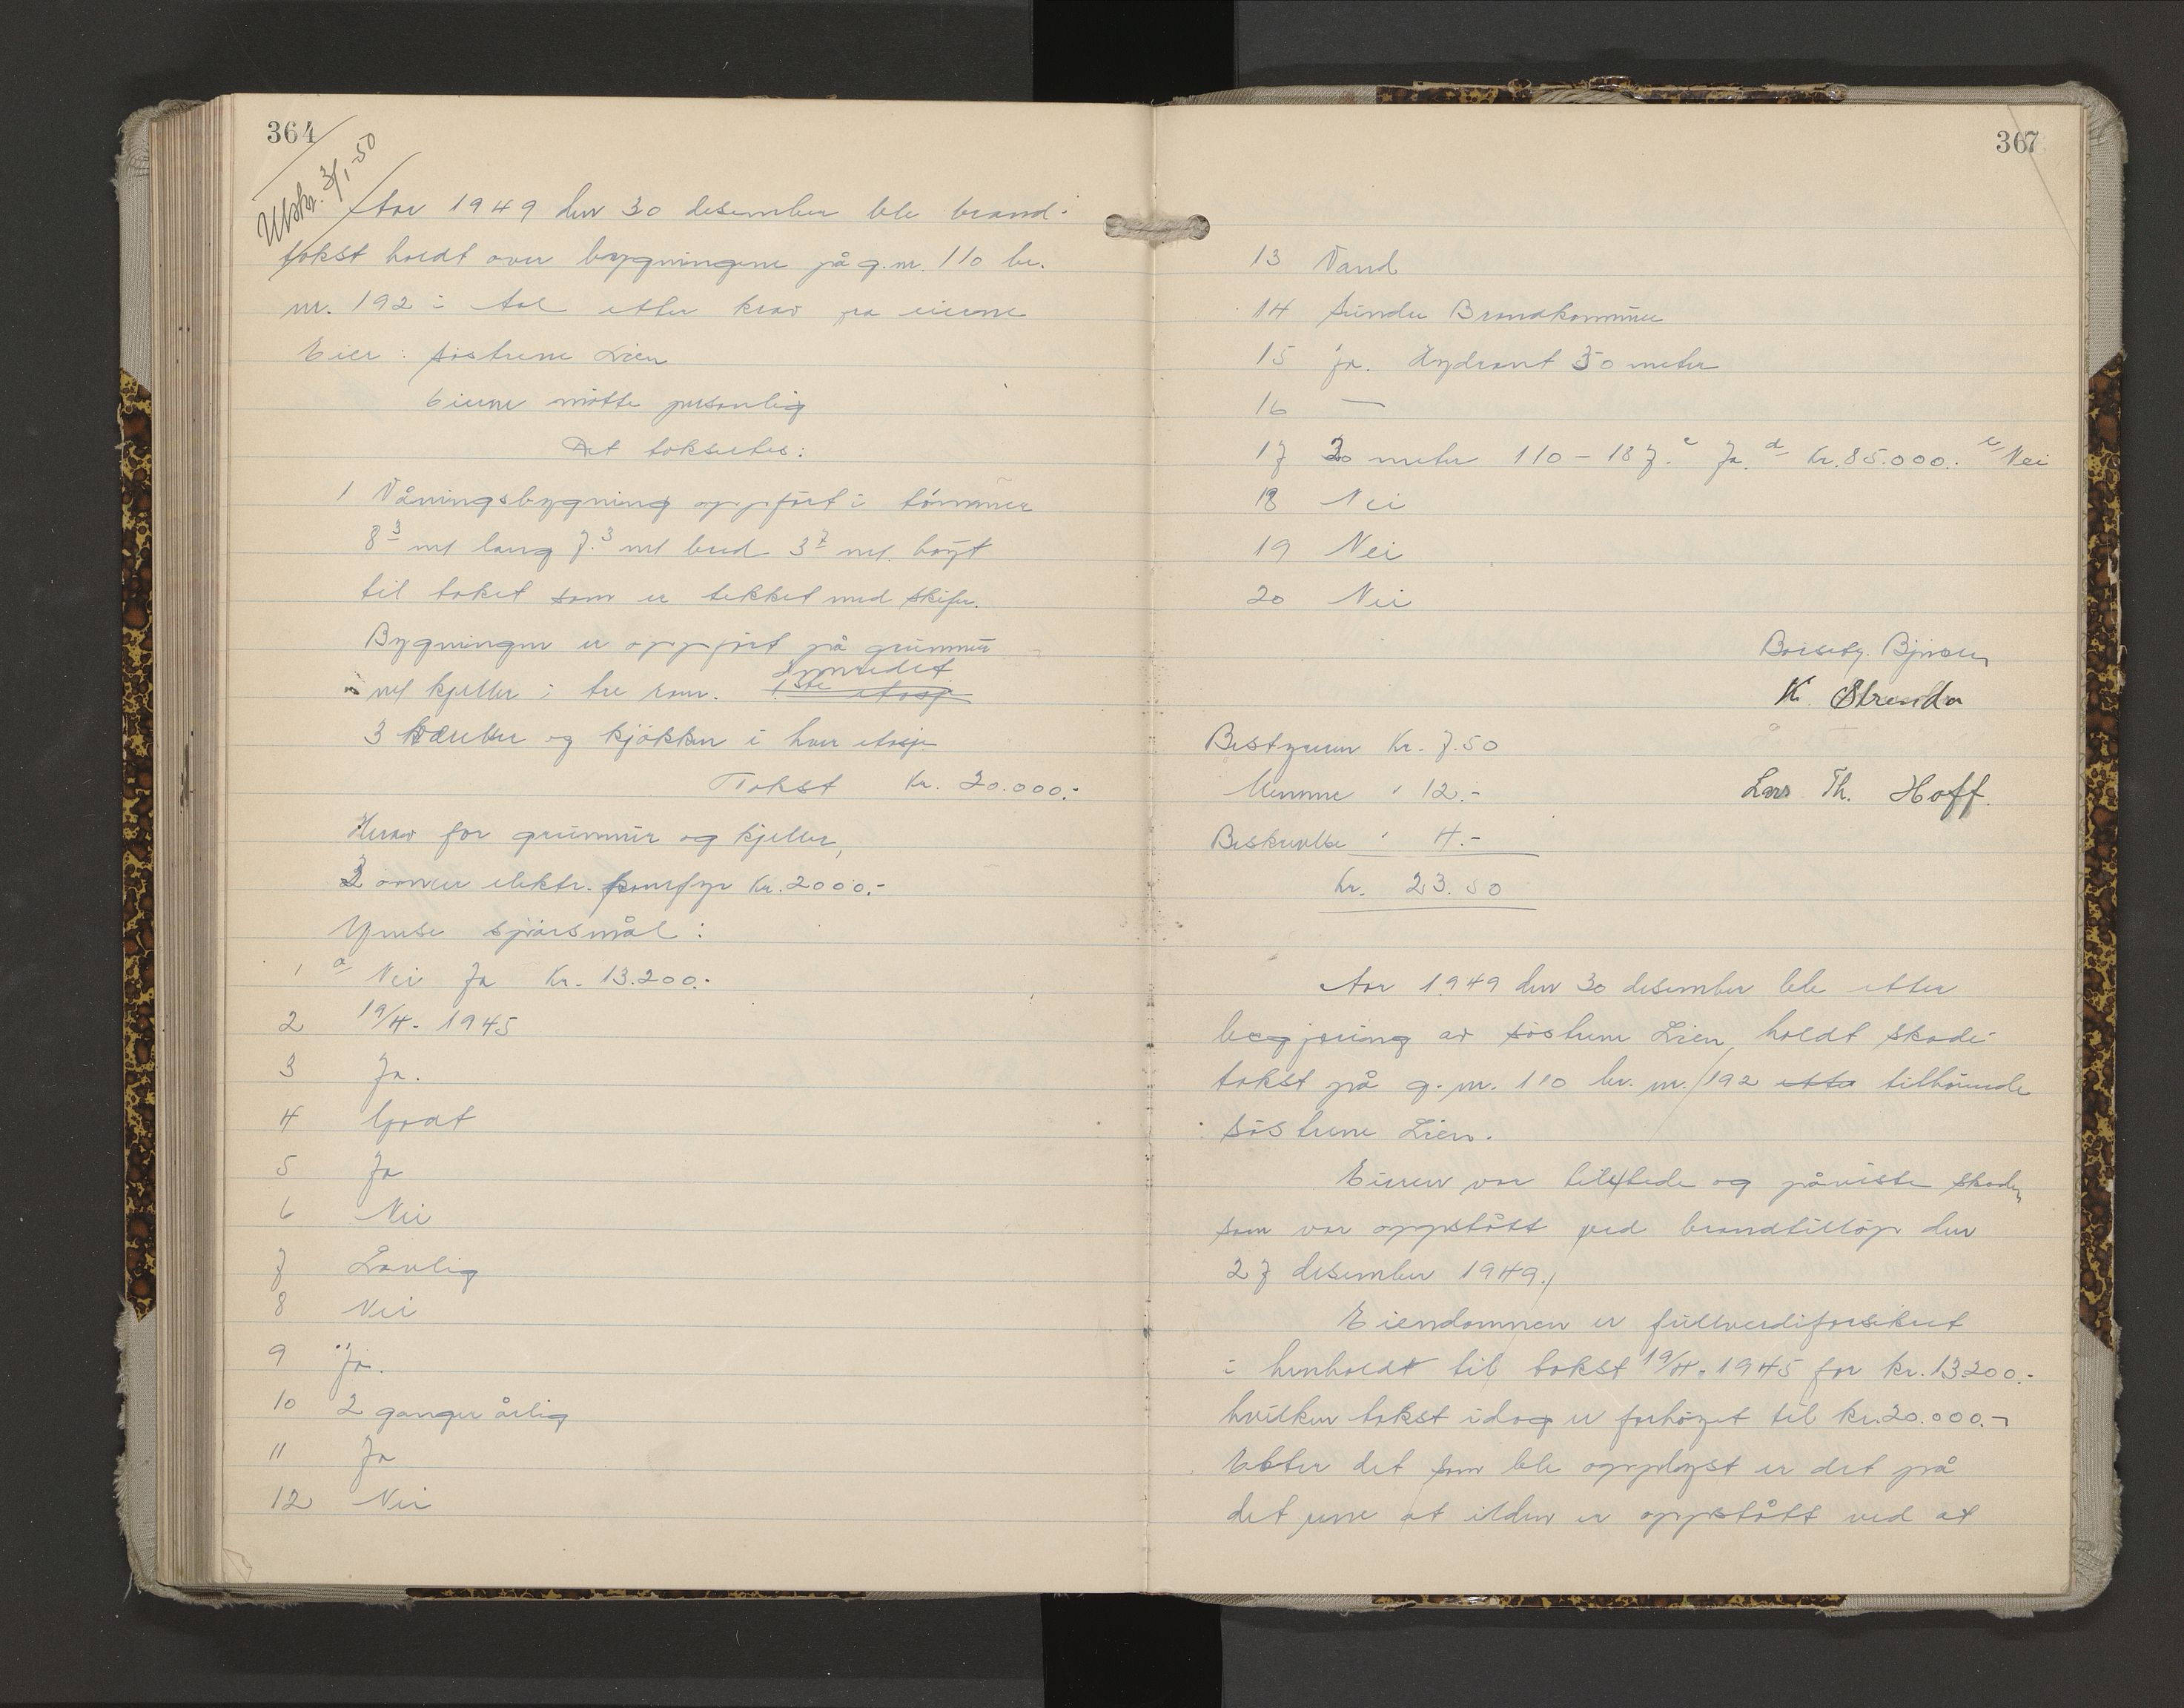 364
Utskr. 3/1-50
Aar 1949 den 30 desember ble brand-
takst holdt over bygningene på g.nr. 110 br.
nr. 192 i Aal etter krav fra eierne
Eier: søstrene Lien
Eierne møtte personlig
Det takseres:
1 Våningsbygning oppført i tømmer
8³ mt lang 7.³ mt bred 3⁷ mt. høyt
til taket som er tekket med skifer.
Bygningen er oppført på grunnmur
mt kjeller i tre rom. 1ste etasje
Innredet
3 værelser og kjøkken i hver etasje
Takst Kr. 20.000.-
Herav for grunmur og kjeller,
3 ovner elektr. komfyr Kr. 2000.-
Ymse spørsmål:
1 a Nei Ja Kr. 13.200.-
2 19/4-1945
3 Ja.
4 Godt
5 Ja
6 Nei
7 Lovlig
8 Nei
9 Ja.
10 2 ganger årlig
11 Ja
12 Nei
367
13 Vand
14 Sundre Brandkommune
15 Ja. Hydrant 50 meter
16 —
17 20 meter 110-187. c Ja. d Kr. 85.000.- e Nei
18 Nei
19 Nei
20 Nei
K. Stranda
Bestyreren Kr. 7.50
Mennene " 12.-
Lars Th. Hoff.
Beskrivelse " 4.-
Kr. 23.50
Aar 1949 den 30 desember ble etter
begjæring av søstrene Lien, holdt skade-
takst på g.nr. 110 br. nr. 192 etter tilhørende
søstrene Lien.
Eieren var tilstede og påviste skaden,
som var oppstått ved brandtilløp den
27 desember 1949.
Eiendommen er fullverdiforsikret
i henholdt til takst 19/4-1945 for kr. 13200.-
hvilken takst idag er forhøyet til kr. 20.000.-
Etter det som ble opplyst er det på
det rene at ilden er oppstått ved at